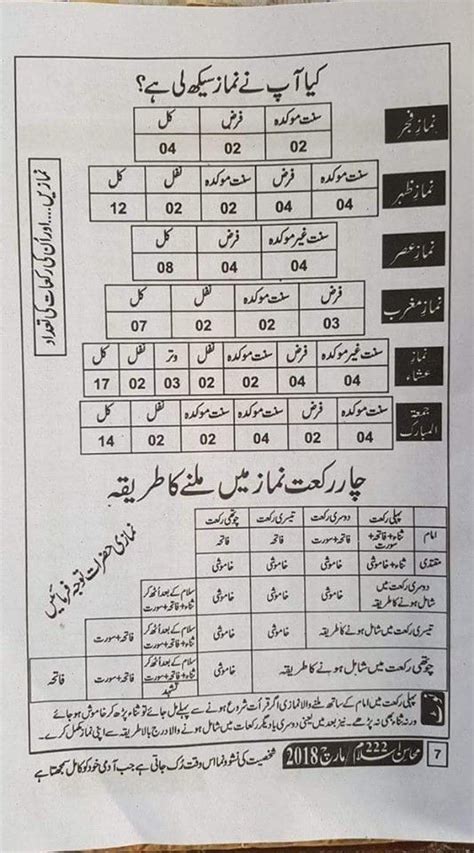 کیا آپ نے نماز سیکھ لی ہے؟
نمازیں....اور اُن کی رکعات کی تعداد
نماز فجر
سنت موکدہ فرض کل
02 02 04
نماز ظہر
سنت موکدہ فرض سنت موکدہ نفل کل
04 04 02 02 12
نماز عصر
سنت غیر موکدہ فرض کل
04 04 08
نماز مغرب
فرض سنت موکدہ نفل کل
03 02 02 07
نماز عشاء
سنت غیر موکدہ فرض سنت موکدہ نفل وتر نفل کل
04 04 02 02 03 02 17
جمعۃ المبارک
سنت موکدہ فرض سنت موکدہ سنت موکدہ نفل کل
04 02 04 02 02 14
چار رکعت نماز میں ملنے کا طریقہ
نمازی حضرات توجہ فرمائیں
پہلی رکعت دوسری رکعت تیسری رکعت چوتھی رکعت
امام ثناء+فاتحہ+سورت فاتحہ+سورت فاتحہ فاتحہ
مقتدی ثناء+خاموشی خاموشی خاموشی خاموشی
دوسری رکعت میں شامل ہونے کا طریقہ خاموشی خاموشی خاموشی سلام کے بعد اٹھ کر ثناء+فاتحہ+سورت
تیسری رکعت میں شامل ہونے کا طریقہ خاموشی خاموشی سلام کے بعد اٹھ کر ثناء+فاتحہ+سورت فاتحہ+سورت
چوتھی رکعت میں شامل ہونے کا طریقہ خاموشی سلام کے بعد اٹھ کر ثناء+فاتحہ+سورت تشہد فاتحہ+سورت فاتحہ
پہلی رکعت میں امام کے ساتھ ملنے والا نمازی اگر قرأت شروع ہونے سے پہلے مل جائے تو ثناء پڑھ کر خاموش ہو جائے
ورنہ ثناء بھی نہ پڑھے۔ نیز بعد میں یعنی دوسری یا دیگر رکعات میں شامل ہونے والا درج بالا طریقہ سے اپنی نماز مکمل کرے۔
7 محاسن اسلام 222 / مارچ 2018 شخصیت کی نشوونما اس وقت رُک جاتی ہے جب آدمی خود کو کامل سمجھتا ہے